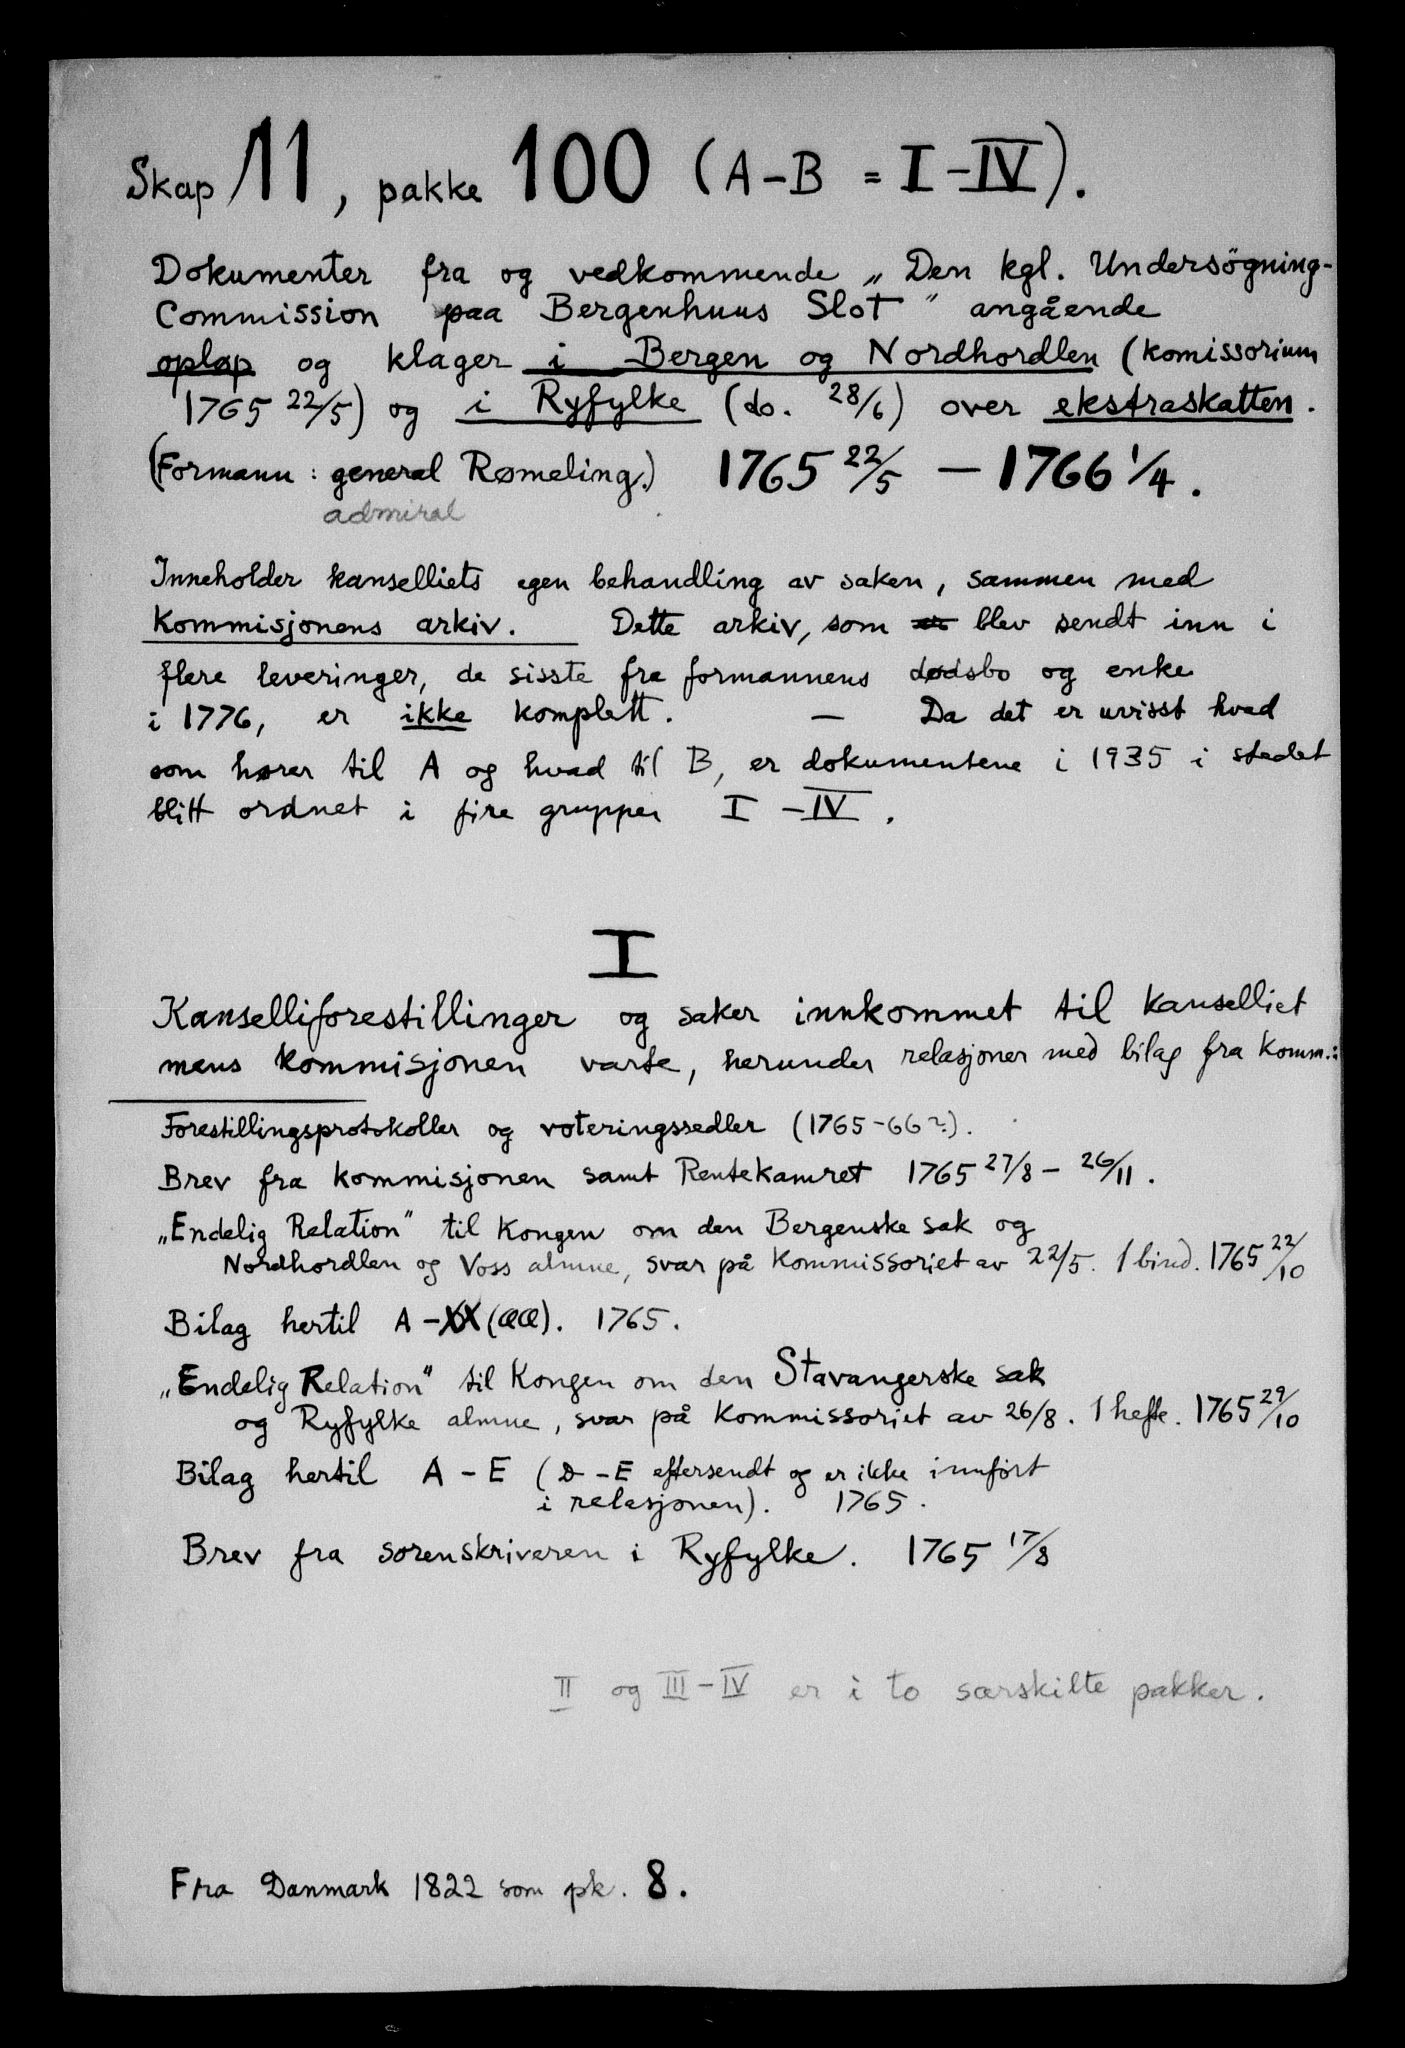 Skap 11, pakke 100 (A-B = I-IV).
Dokumenter fra og vedkommende „Den kgl. Undersögning-
Commission paa Bergenhuus Slot" angående
opløp og klager i Bergen og Nordhordlen (komissorium
1765 22/5) og i Ryfylke (do. 28/6) over ekstraskatten.
(Formann: general Rømeling.) 1765 22/5 — 1766 1/4.
admiral
Inneholder kanselliets egen behandling av saken, sammen med
Kommisjonens arkiv. Dette arkiv, som er blev sendt inn i
flere leveringer, de sisste fra formannens dødsbo og enke
i 1776, er ikke komplett. — Da det er uvisst hvad
som hører til A og hvad til B, er dokumentene i 1935 i stedet
blitt ordnet i fire grupper I - IV.
I
Kanselliforestillinger og saker innkommet til kanselliet
mens kommisjonen varte, herunder relasjoner med bilag fra komm.:
Forestillingsprotokoller og voteringssedler (1765-66?).
Brev fra kommisjonen samt Rentekamret 1765 27/8 - 26/11.
„Endelig Relation" til Kongen om den Bergenske sak og
Nordhordlen og Voss almue, svar på kommissoriet av 22/5. 1 bind. 1765 22/10
Bilag hertil A - XX (ææ). 1765.
„Endelig Relation" til Kongen om den Stavangerske sak
og Ryfylke almue, svar på kommissoriet av 26/8. 1 hefte. 1765 29/10
Bilag hertil A - E (D - E eftersendt og er ikke innført
i relasjonen). 1765.
Brev fra sorenskriveren i Ryfylke. 1765 17/8
II og III - IV er i to særskilte pakker.
Fra Danmark 1822 som pk. 8.